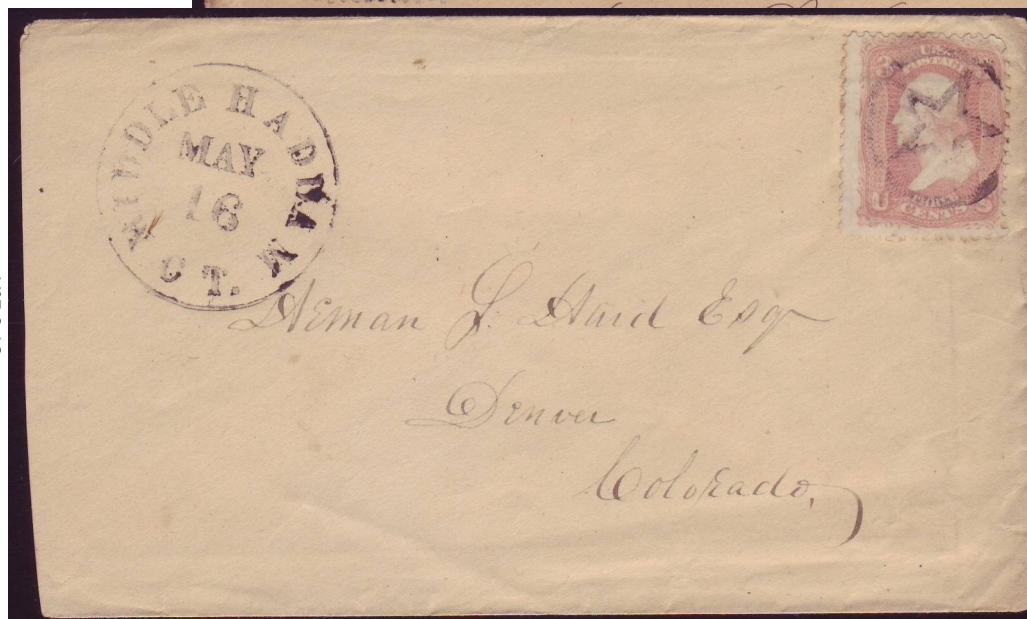 MIDDLE HADDAM
MAY
16
CT.
U.S.
POSTAGE
3
U CENTS S
Heman J. Hard Esq
Denver
Colorado,